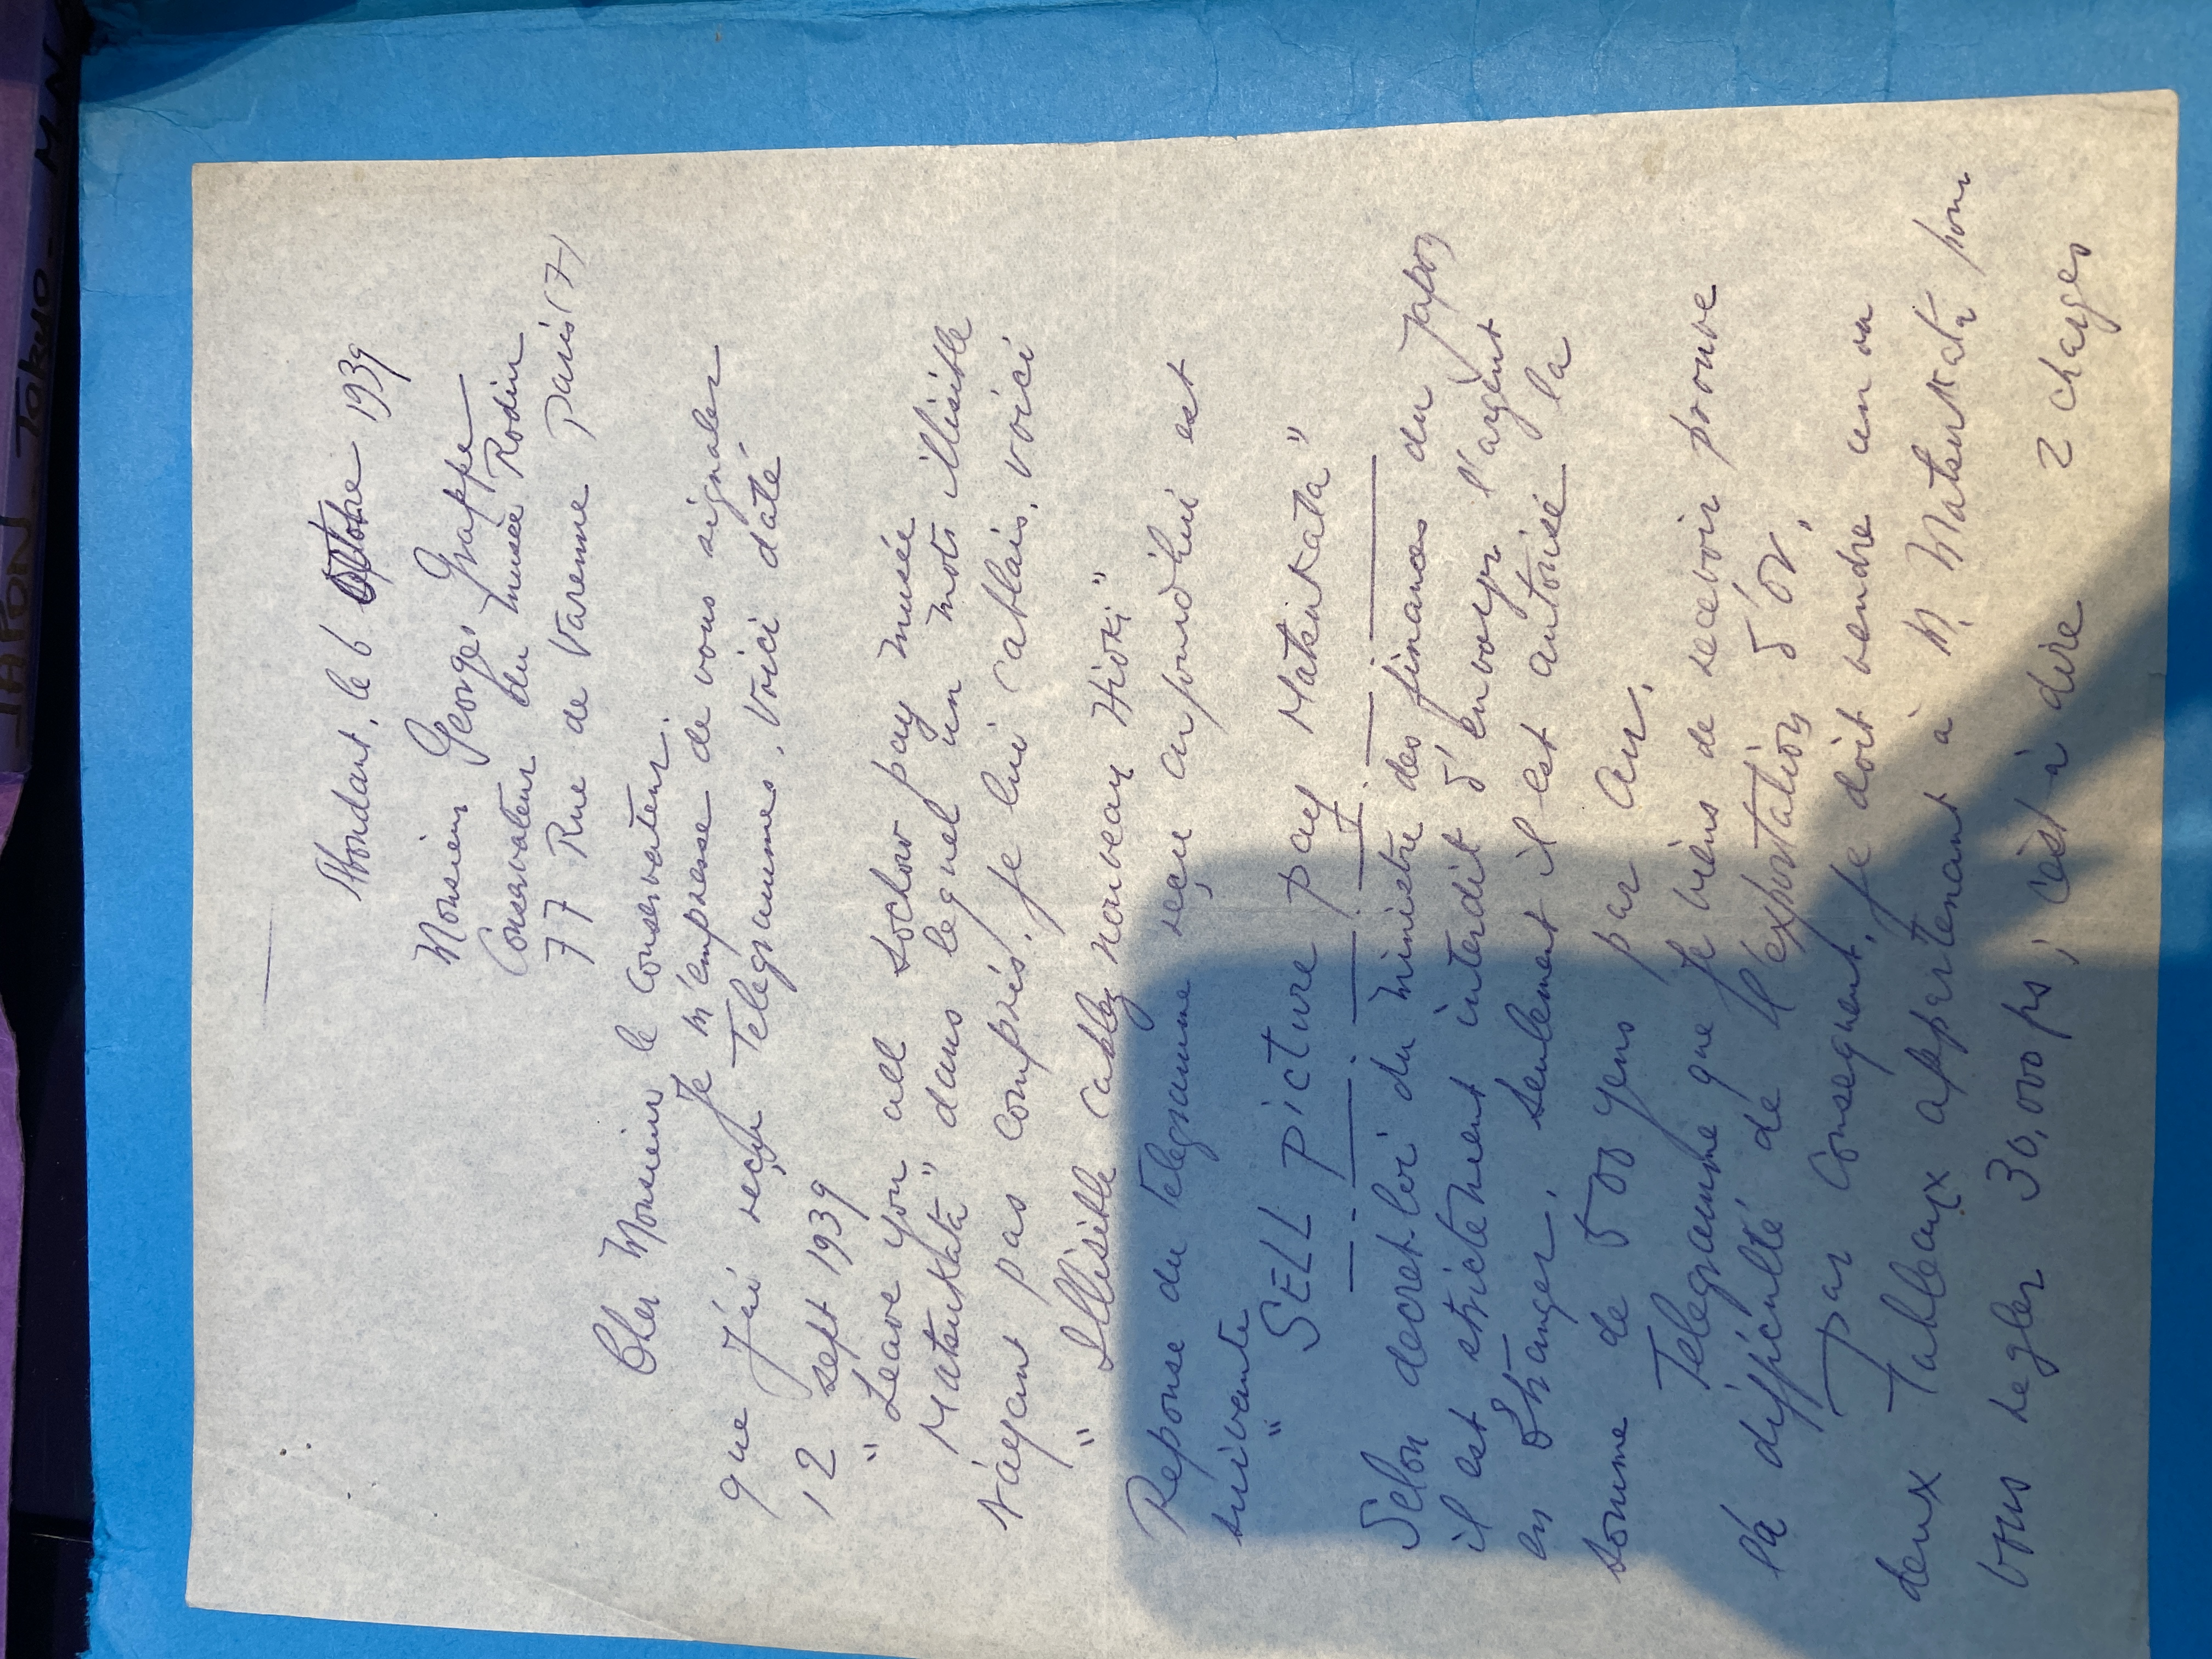 Abondant, le 6 Octobre 1939
Monsieur Georges Grappe
Conservateur du musée Rodin
77 Rue de Varenne Paris (7)
Cher Monsieur le Conservateur.
Je m'empresse de vous signaler
que J'ai reçu Telegrammes. Voici daté
12 sept 1939
" Leave you all pay musée
Matsukata" dans lequel un mots illisible
N'ayant pas compris. Je lui Cablais, voici
" Illisible Cablez nouveau Hioki"
Reponse du Telegramme reçu aujourd'hui est
suivante
" SELL PICTURE PAY Matsukata"
Selon decret loi du ministre des finances du Japon
il est strictement interdit d'envoyer l'argent
en Etranger, seulement il est autorisé la
somme de 500 yens par An.
Telegramme que Je viens de recevoir prouve
la difficulté de l'exportation d'or.
Par Consequent, Je doit vendre un ou
deux Tableaux appartenant à M. Matsukata pour
vous regler 30,000 frs, c'est à dire 2 charges